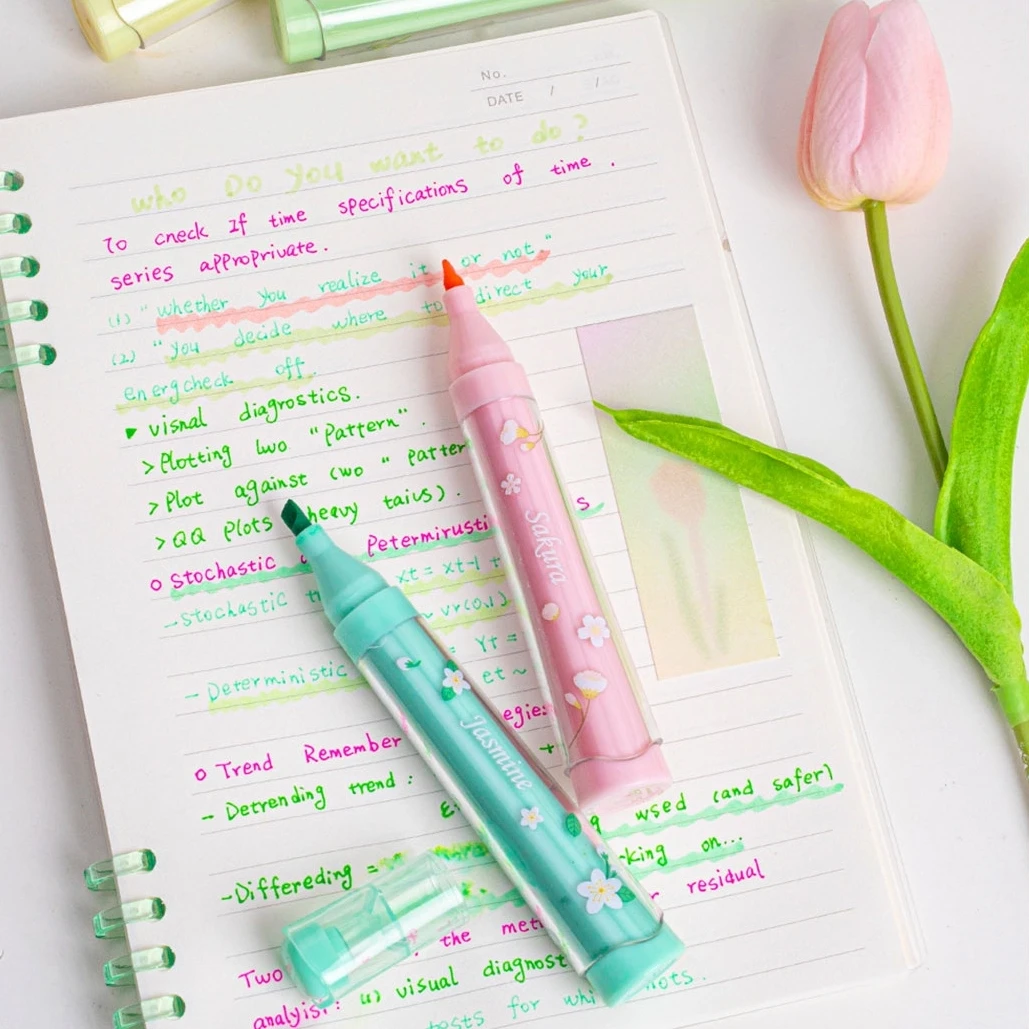 No.
DATE / /
who Do you want to do?
To cneck If time specifications of time.
series approprivate.
(1) "whether you realize it or not"
(2) "you decide where to direct your
energcheck off.
visnal diagnostics.
>Plotting two "Pattern".
>Plot against two " patter
>QQ Plots heavy taivs).
o Stochastic Petermirusti s
-Stochastic xt = xt-1 +
~ vr(0.1)
- Deterministic = Yt =
et ~
o Trend Remember egies
- Detrending trend: +
g wsed (and safer)
-Differeding = king on...
Two the met residual
analyis: (1) visual diagnost
tests for whi nots.
Sakura
Jasmine